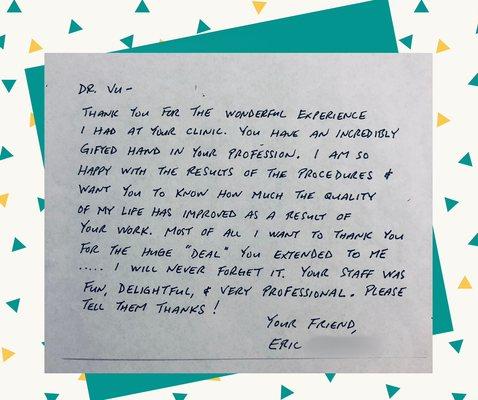 DR. VU-
THANK YOU FOR THE WONDERFUL EXPERIENCE
I HAD AT YOUR CLINIC. YOU HAVE AN INCREDIBLY
GIFTED HAND IN YOUR PROFESSION. I AM SO
HAPPY WITH THE RESULTS OF THE PROCEDURES &
WANT YOU TO KNOW HOW MUCH THE QUALITY
OF MY LIFE HAS IMPROVED AS A RESULT OF
YOUR WORK. MOST OF ALL I WANT TO THANK YOU
FOR THE HUGE "DEAL" YOU EXTENDED TO ME
..... I WILL NEVER FORGET IT. YOUR STAFF WAS
FUN, DELIGHTFUL, & VERY PROFESSIONAL. PLEASE
TELL THEM THANKS!
YOUR FRIEND,
ERIC